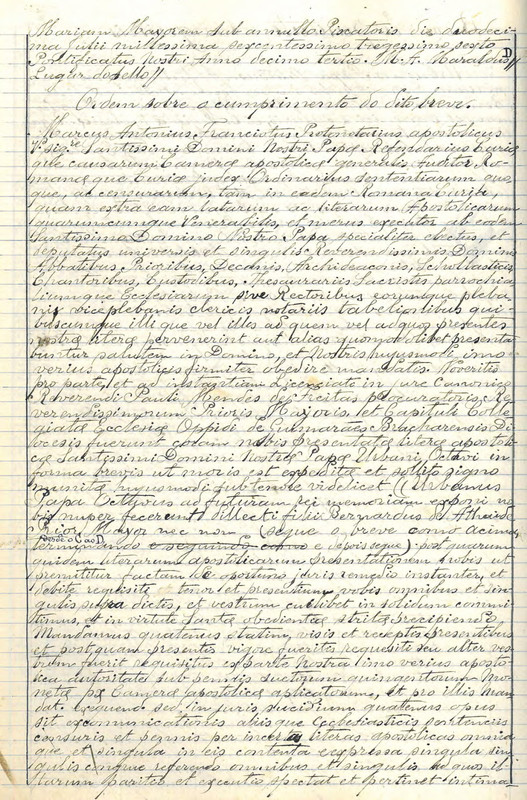 Mariam Mayorem sub annullo Piscatoris die duodeci-
ma Julii millessima sexcentessimo trigessimo sexto
Pontificatus Nostri Anno decimo tertio. M. A. Maraldus D
Lugar do sello //
Ordem sobre o cumprimento do dito breve.
Marcus Antonius, Franciotus Protonotorius apostolicus
Santissimi Domini Nostri Papæ Referendarius Curiæ
que causarum Cameræ apostolicæ generalis Auditor, Ro-
manæ que Curiæ judex Ordinarius sententiarum quo-
que, ac censurarum, tam in eadem Romana Curia,
quam extra eam latarum ac literarum Apostolicarum
quarumcumque Venerabilis, et merus executor ab eodem
Santissimo Domino Nostro Papa specialiter electus, et
deputatus universis et singulis Reverendissimis Dominis
Abbatibus, Prioribus, Decanis, Archideaconis, Scholasticis,
Chantoribus, Custodibus, Thesaurariis Sacristis parrochia-
liumque Ecclesiarum sive Rectoribus eorumque pleba-
nis viceplebanis clericis notariis tabelionibus qui-
buscumque illi que vel illis ad quem vel ad quos presentes
nostræ literæ pervenerint aut alias quomodolibet presenta-
buntur salutem in Domino, et Nostris hujusmodi imo
verius apostolicis firmiter obedire mandatis. Noveritis
pro parte, et ad instantiam Licenciati in jure Canonico
Reverendi Pauli, Mendes de Freitas procuratoris, Re-
verendissimorum Prioris Mayoris, et Capituli Colle-
giatæ Ecclesiæ Oppidi de Guimarães Bracharensis Di-
ocesis fuerunt coram nobis presentatæ literæ apostoli-
cæ Santissimi Domini Nostræ Papæ Urbani, Octavi in
forma brevis ut moris est expedita et solito signo
munitæ hujusmodi sub tenore videlicet (Urbanus
Papa Octavus ad futuram rei memoriam exponi no-
bis nuper fecerunt dillecti filii Bernardus de Athaide
Prior Mayor nec non (segue o breve como acima,
desde o C ao D
terminando e seguindo e depois segue) post quarum
quidem literarum apostolicarum presentationem nobis ut
premititur factam de oportuno juris remedio instanter, et
debite requisite tenor et presentium vobis omnibus et sin-
gulis supra dictis, et vestrum cuilibet in solidum commi-
timus, et in virtute Santæ obedientiæ stritæ precipiendo,
Mandamus quatenus statim, visis et receptis presentibus
et postquam presentes vigore fueritis requesiti seu alter ves-
trum fuerit requisitus ex parte Nostra imo verius aposto-
lica autoritate sub pennis ductorum quingentorum Mo-
netæ pæ Cameræ apostolicæ aplicatorum, et pro illis man-
dat. exequendo sed, in juris, sucidium quatenus opus
sit excomunicationis aliis que Ecclesiasticis sententiis
censuris et pennis per in literas apostolicas omnia
que et singula in eis contenta expressa singula sin-
gulis congrue referendo omnibus et singulis ad quos il-
larum paritio et executio spectat et pertinet intima-